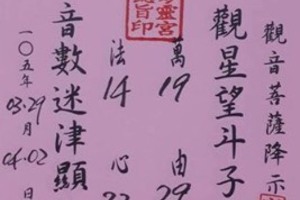 觀音菩薩降示
觀星望斗子
萬 19 由 29
法 14 心
音數迷津顯
一〇五年 03.29 月 04.02 日